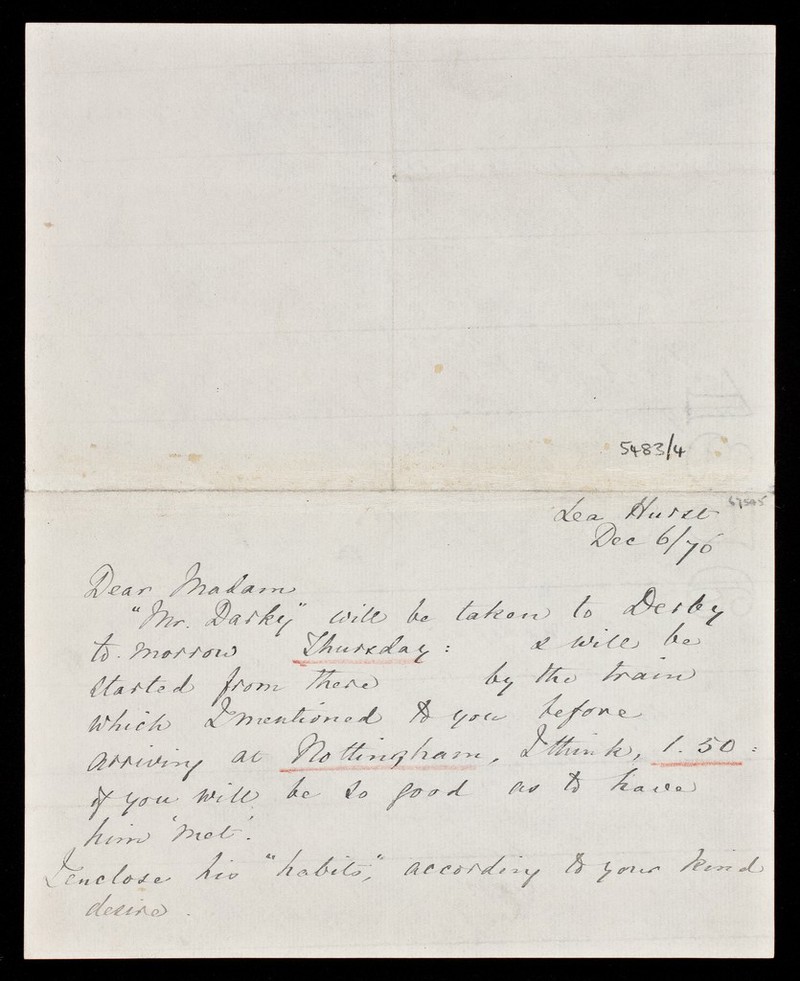 5483/4
67505
Lea Hurst
Dec 6/76
Dear Madam
"Mr. Darky" will be taken to Derby
to-morrow Thursday: & will be
started from there by the train
which I mentioned to you before
arriving at Nottingham, I think, 1.50:
if you will be so good as to have
him 'met'.
I enclose his "habits", according to your kind
desire.